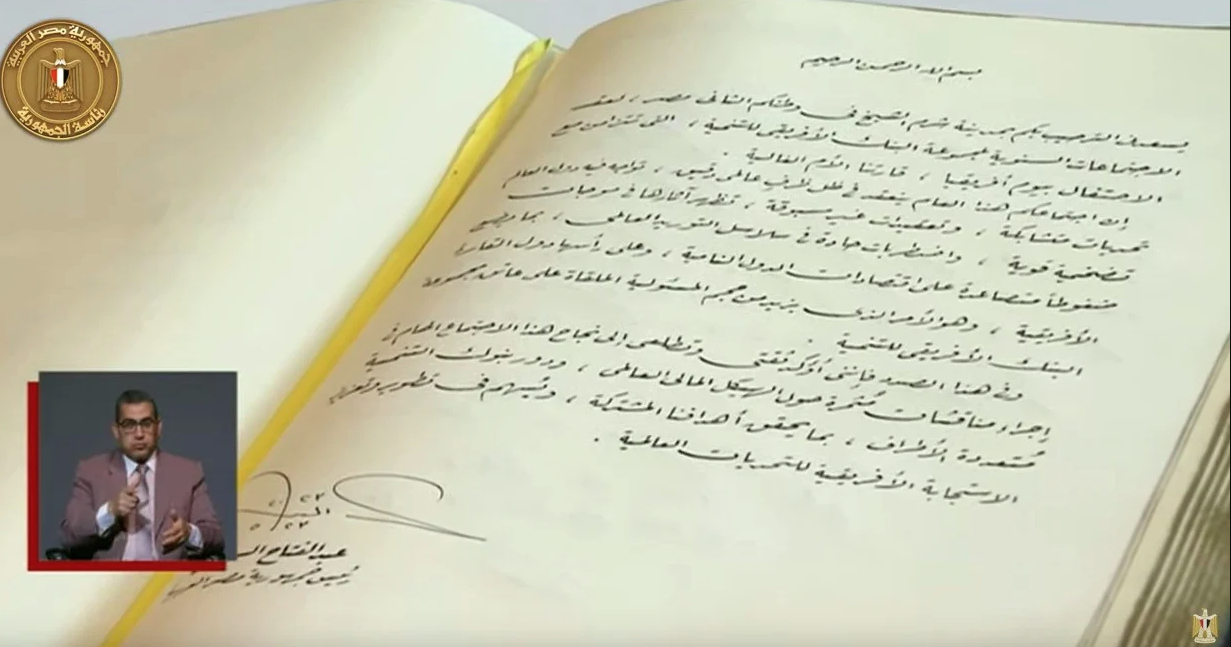 جمهورية مصر العربية
رئاسة الجمهورية
بسم الله الرحمن الرحيم
يسعدنى الترحيب بكم بمدينة شرم الشيخ فى وطنكم الثانى مصر، لعقد
الاجتماعات السنوية لمجموعة البنك الأفريقى للتنمية، التى تتزامن مع
الاحتفال بيوم أفريقيا، قارتنا الأم الغالية.
إن اجتماعكم هذا العام ينعقد فى ظل ظرف عالمى دقيق، تواجه فيه دول العالم
تحديات متشابكة، وتعقيدات غير مسبوقة، تظهر آثارها فى موجات
تضخمية قوية، واضطرابات حادة فى سلاسل التوريد العالمى، بما يضع
ضغوطاً متصاعدة على اقتصادات الدول النامية، وعلى رأسها دول القارة
الأفريقية، وهو الأمر الذى يزيد من حجم المسئولية الملقاة على عاتق مجموعة
البنك الأفريقى للتنمية.
وفى هذا الصدد فإننى أؤكد ثقتى وتطلعى إلى نجاح هذا الاجتماع الهام فى
إجراء مناقشات مُثمرة حول الهيكل المالى العالمى، ودور بنوك التنمية
مُتعددة الأطراف، بما يحقق أهدافنا المشتركة، ويُسهم فى تطوير وتعزيز
الاستجابة الأفريقية للتحديات العالمية.
عبد الفتاح
رئيس جمهورية مصر